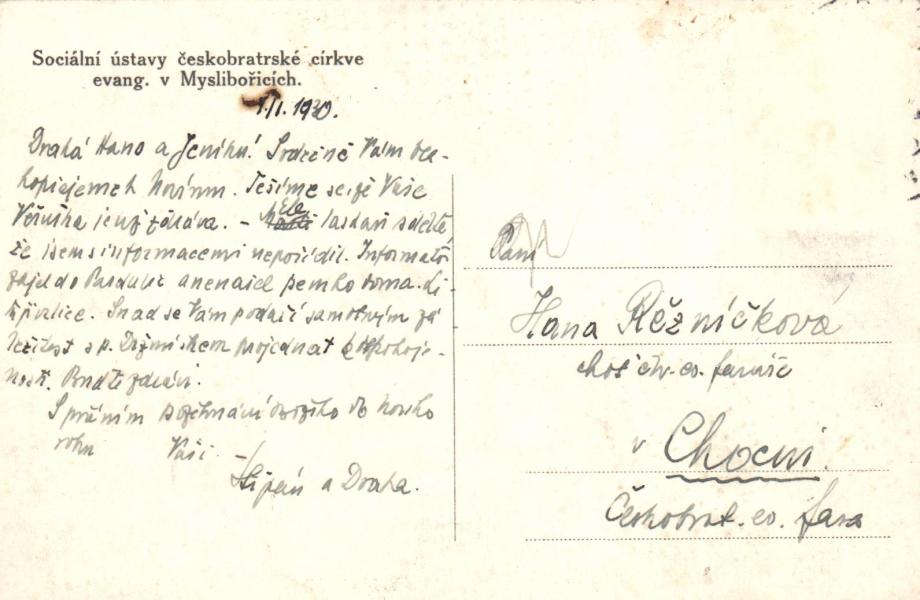 Sociální ústavy českobratrské církve
evang. v Myslibořicích.
1./I. 1930.
Drahá Hano a Jeníku! Srdečně Vám bla-
hopřejeme k Novým. Těšíme se, že Vaše
Věruška je už zdráva. – Mělа laskavě sdělte,
že jsem s informacemi nepořídil. Informátor
zajel do Pardubic a nenašel doma.
lituji velice. Snad se Vám podaří samotným zá
ležitost s p. projednat k spokoje-
nosti. Buďte zdrávi.
S přáním požehnání božího do nového
roku Vaši
Štěpán a Draha.
Paní
Hana Řězníčková
choť čbr. ev. faráře
v Chocni.
Českobrat. ev. fara